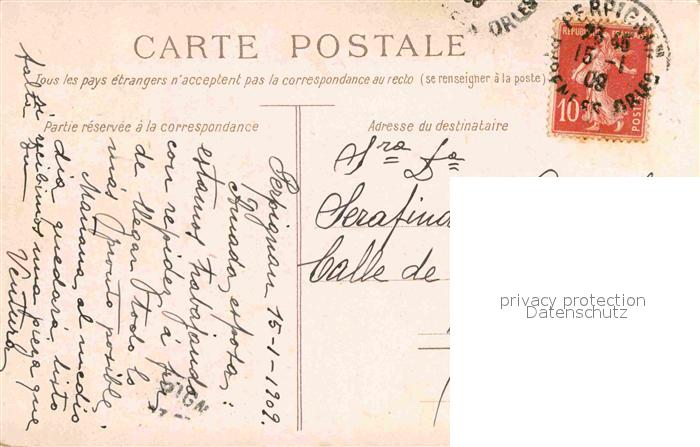 CARTE POSTALE
Tous les pays étrangers n'acceptent pas la correspondance au recto (se renseigner à la poste)
Partie réservée à la correspondance
Adresse du destinataire
PERPIGNAN
23 35
15 -1
09
PYRENEES ORLES
REPUBLIQUE FRANÇAISE
10
POSTES
ORLES
Sra Da
Serafina
Calle de
Perpignan 15-1-1909.
Amada esposa:
estamos trabajando
con rapidez á fin
de llegar todo lo
mas pronto posible.
Mañana, al medio
dia quedará listo
si recibimos una pieza que
falta
Ventura
privacy protection
Datenschutz